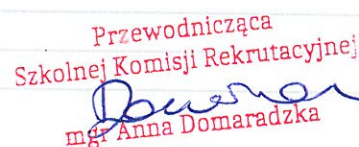 Przewodnicząca
Szkolnej Komisji Rekrutacyjnej
mgr Anna Domaradzka